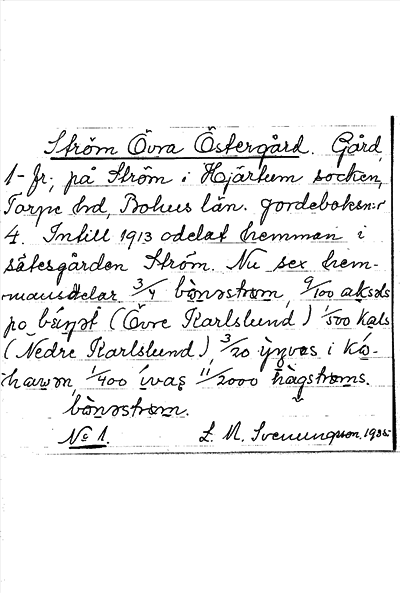 Ström Övra Östergård. Gård,
1 fr; på Ström i Hjärtum socken,
Torpe hrd, Bohus län. Jordeboksn:r
4. Intill 1913 odelat hemman i
sätesgården Ström. Nu sex hem-
mansdelar 3/4 bònəstrøm, 9/100 aksəls
po (Övre Karlslund) 1/500 Kals
(Nedre Karlslund), 3/20 i
1/400 ivas 11/2000 hàgstrøms.
bònəstrøm.
No 1. L. M. Svenungsson. 1935